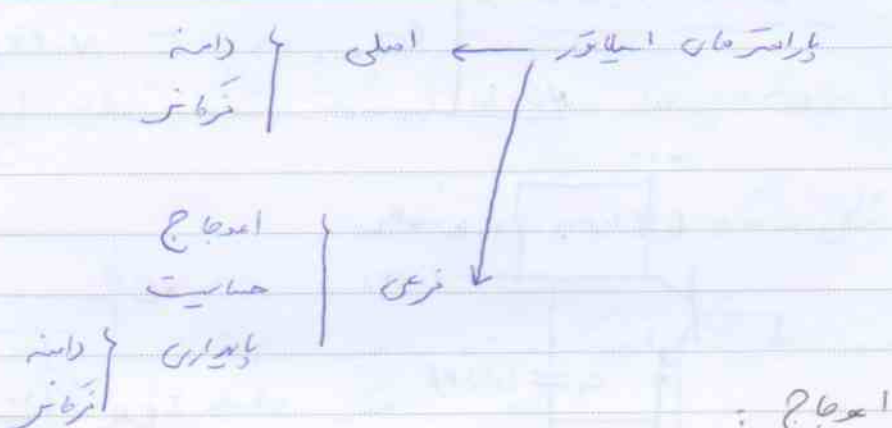 پارامترهای اسیلاتور ← اصلی { دامنه
فرکانس
اعوجاج
فرعی { حساسیت
پایداری { دامنه
فرکانس
اعوجاج :